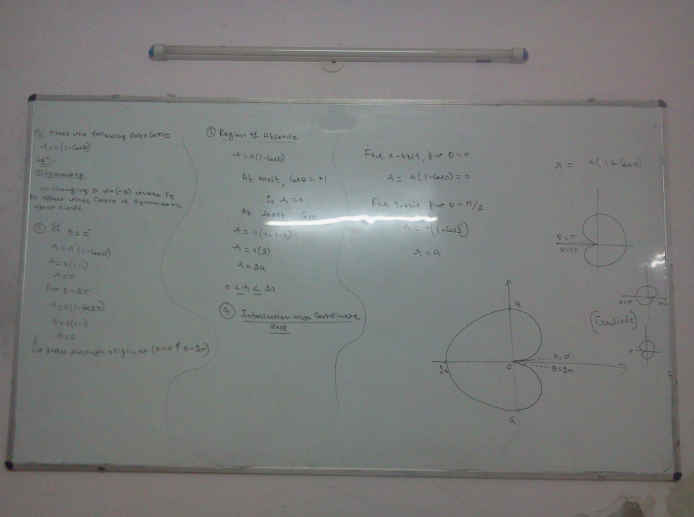 Trace the following polar curve
r = a(1-Cosθ)
Solⁿ:-
① Symmetry
On changing θ to (-θ) there is
no effect thus curve is symmetric
about x-axis
② If θ = 0°
r = a(1-Cos0)
r = a(1-1)
r = 0
Put θ = 2π
r = a(1-Cos2π)
r = a(1-1)
r = 0
It passes through origin at (θ=0 & θ=2π)
③ Region of Absence
r = a(1-Cosθ)
At most, Cosθ = +1
∴ r = 0
At least, Cosθ
r = a(1-(-1))
r = a(2)
r = 2a
0 ≤ r ≤ 2a
④ Intersection with Coordinate
axes
For x-axis, put θ = 0
r = a(1-Cos0) = 0
For y-axis put θ = π/2
r = a(1-Cos π/2)
r = a
a
2a
0
θ = 0°
θ = 2π
a
r = a(1+Cosθ)
θ = π
(Cardiode)